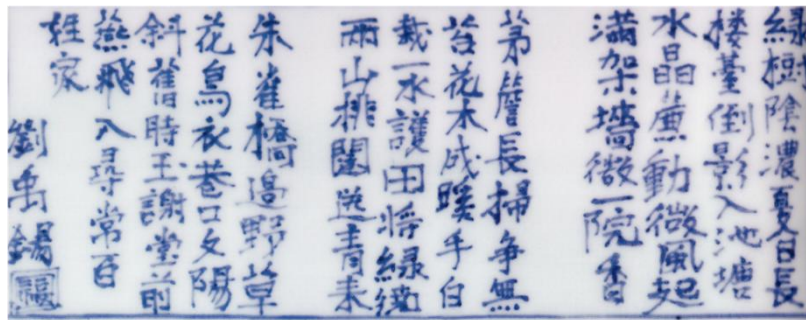 綠樹陰濃夏日長
樓臺倒影入池塘
水晶簾動微風起
滿架墻微一院香
茅簷長掃爭無
苔花木成蹊手白
栽一水護田將綠繞
兩山排闥送青来
朱雀橋邊野草
花鳥衣巷口夕陽
斜舊時王謝堂前
燕飛入尋常百
姓家
劉禹錫